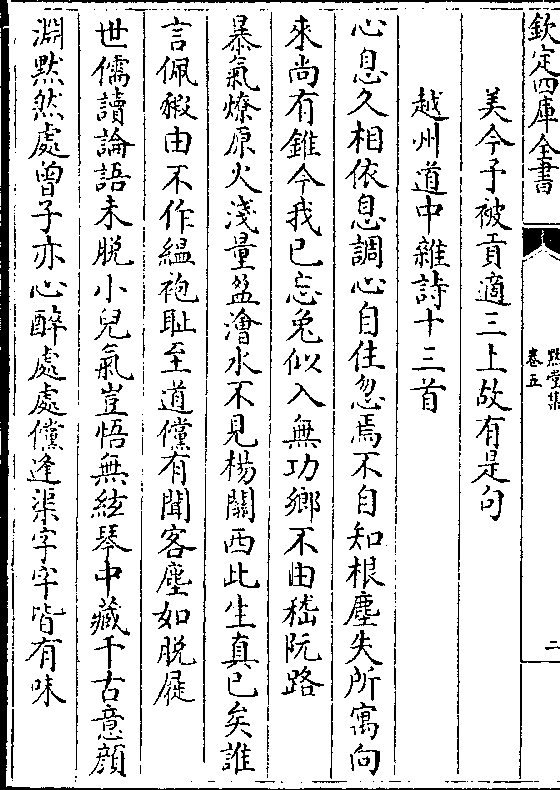 欽定四庫全書
卷五
二
美今予被貢適三上故有是句
越州道中雜詩十三首
心息久相依息調心自住忽焉不自知根塵失所寓向
來尚有錐今我已忘兔似入無功鄉不由嵇阮路
暴氣燎原火淺量盈澮水不見楊關西此生真已矣誰
言佩豭由不作緼袍耻至道儻有聞客塵如脫屣
世儒讀論語未脫小兒氣豈悟無絃琴中藏千古意顔
淵黙然處曾子亦心醉處處儻逢渠字字皆有味